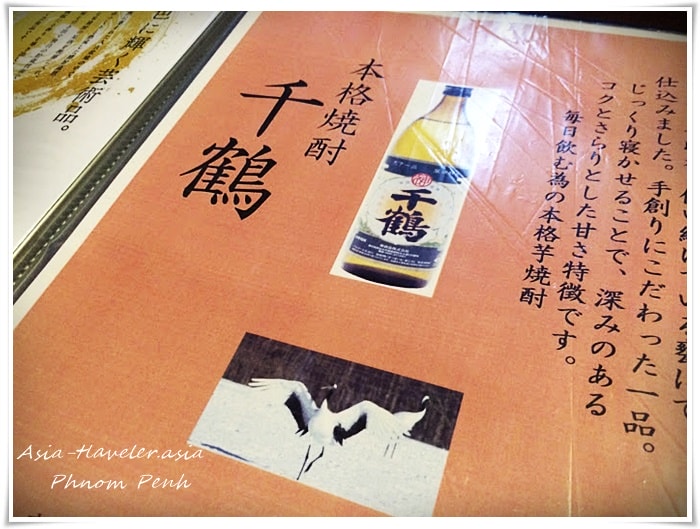 色に輝く芸術品。
本格焼酎
千鶴
千鶴
仕込みました。手創りにこだわった一品。
じっくり寝かせることで、深みのある
コクとさらりとした甘さ特徴です。
毎日飲む為の本格芋焼酎
Asia-Haveler.asia
Phnom Penh